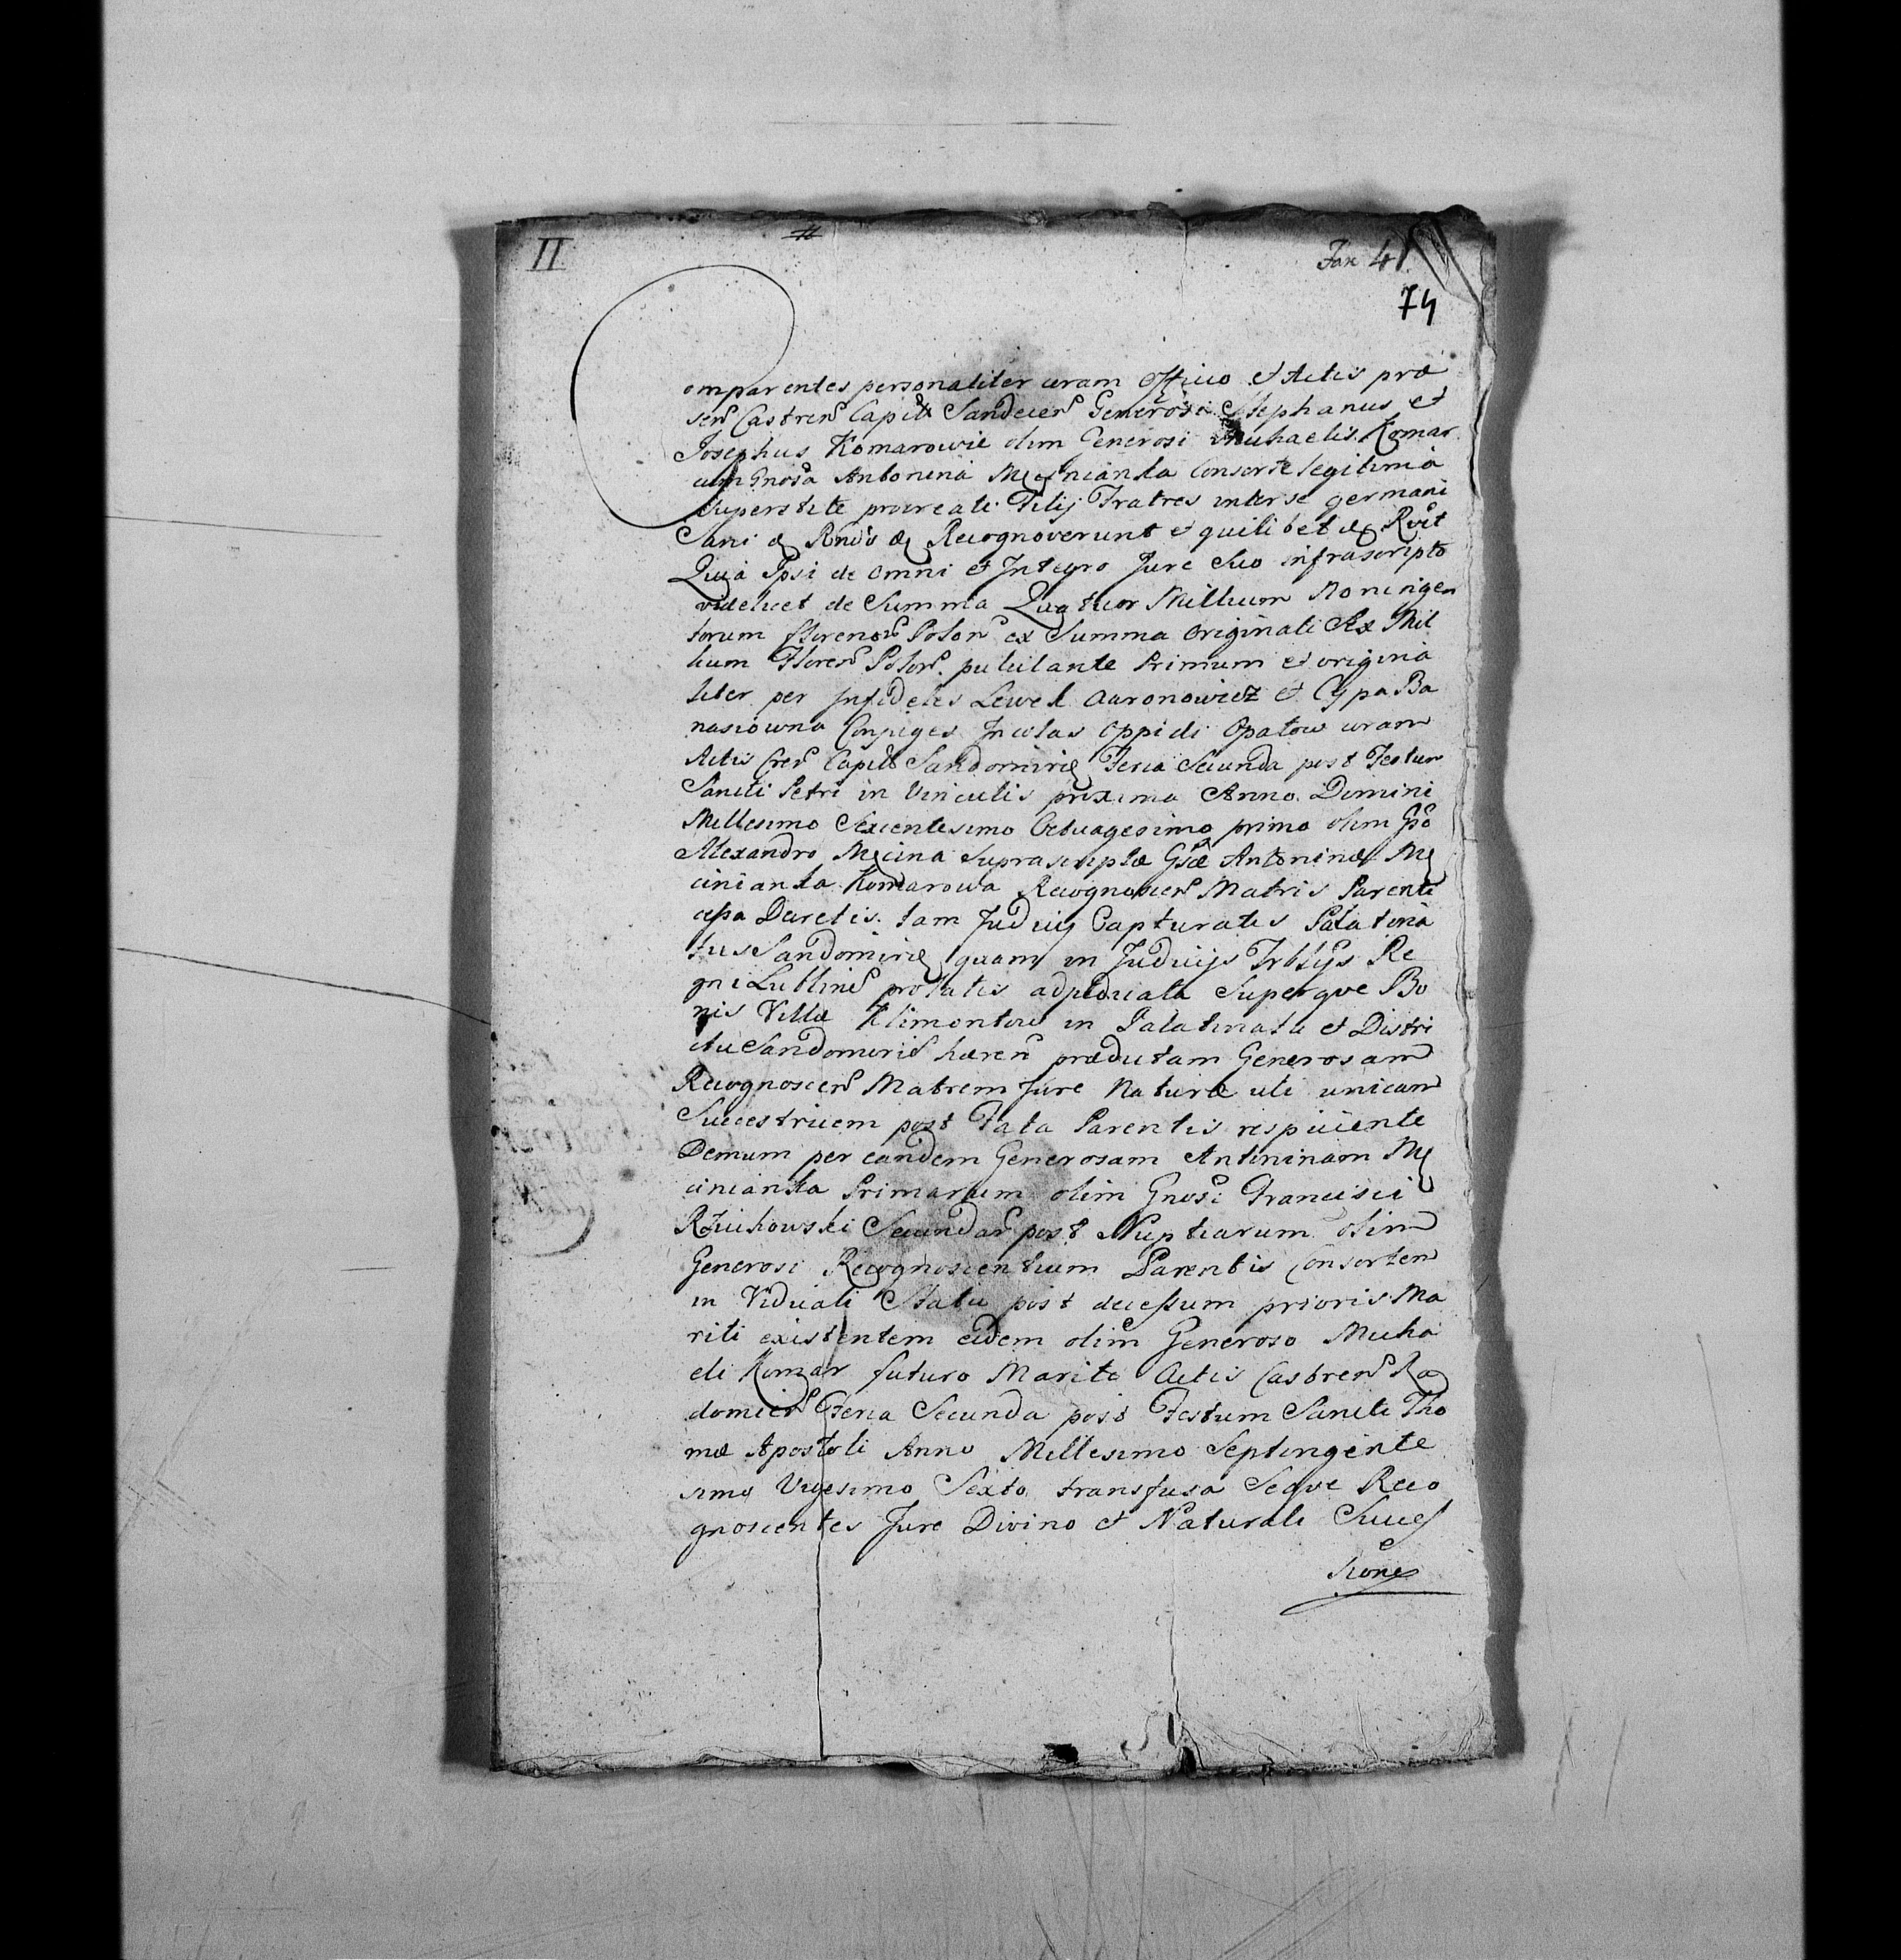 II
Fax 41
74
Comparentes personaliter coram Officio et Actis præ
sen Castren Capit Sandecen Generosi Stephanus et
Josephus Komarowie olim Generosi Michaelis Komar
cum Gnosa Antonina Męcinianka Consorte legitima
superstite procreati Filij Fratres inter se germani
Sani & Rnės & Recognoverunt et quilibet & Rvit
Quia Ipsi de omni et Integro Jure Suo infrascripto
videlicet de Summa Quatuor Millium Noningen
torum florenor Polon ex Summa Originali Sex Mil
lium Floren Polon. pullulante Primum et origina
liter per Infideles Lewek Aaronowicz et Cypa Ba
nasiowna Conjuges Incolas Oppidi Opatow coram
Actis Cren Capit Sandomirię Feria Secunda post Festum
Sancti Petri in Vinculis proxima Anno Domini
Millesimo Sexcentesimo Octuagesimo primo olim Gso
Alexandro Męcina suprascriptæ Gsæ Antoninæ Mę
cinianka Komarowa Recognoscen Matris Parenti
cessa Decretis tam Judicij Capturalis Palatina
tus Sandomirię quam in Judicijs Trblijs Re
gni Lublinen prolatis adjudicata Superque Bo
nis Villæ Klimontow in Palatinatu et Distri
ctu Sandomirien hæren prædictam Generosam
Recognoscen Matrem Jure Naturæ uti unicam
Successtricem post Fata Parentis respiciente
Demum per eandem Generosam Antoninam Mę
cinianka Primarum olim Gnosi Francisci
Rżuchowski Secundar post Nuptiarum olim
Generosi Recognoscentium Parentis Consortem
in Viduali Statu post decessum prioris Ma
riti existentem eidem olim Generoso Micha
eli Komar futuro Marito Actis Castren Ra
domien Feria Secunda post Festum Sancti Tho
mæ Apostoli Anno Millesimo Septingente
simo Vigesimo Sexto transfusa Seque Reco
gnoscentes Jure Divino et Naturali Succes
sione